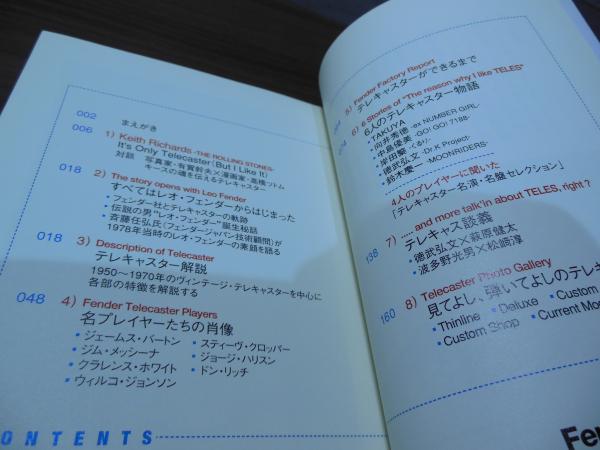 002
まえがき
006
1) Keith Richards -THE ROLLING STONES-
It's Only Telecaster (But I Like It)
対談 写真家・有賀幹夫×漫画家・高橋ツトム
キースの魂を伝えるテレキャスター
018
2) The story opens with Leo Fender
すべてはレオ・フェンダーからはじまった
・フェンダー社とテレキャスターの軌跡
・伝説の男"レオ・フェンダー"誕生秘話
・斉藤任弘氏(フェンダージャパン技術顧問)が
1978年当時のレオ・フェンダーの素顔を語る
018
3) Description of Telecaster
テレキャスター解説
1950〜1970年のヴィンテージ・テレキャスターを中心に
各部の特徴を解説する
048
4) Fender Telecaster Players
名プレイヤーたちの肖像
・ジェームス・バートン ・スティーヴ・クロッパー
・ジム・メッシーナ ・ジョージ・ハリスン
・クラレンス・ホワイト ・ドン・リッチ
・ウィルコ・ジョンソン
ONTENTS
5) Fender Factory Report
テレキャスターができるまで
6) 6 Stories of "The reason why I like TELES"
6人のテレキャスター物語
・TAKUYA
・向井秀徳 -ex NUMBER GIRL-
・中島優美 -GO!GO!7188-
・岸田繁 -くるり-
・徳武弘文 -Dr.K Project-
・鈴木慶一 -MOONRIDERS-
4人のプレイヤーに聞いた
「テレキャスター名演・名盤セレクション」
138
7) ..... and more talk'in about TELES, right?
テレキャス談義
・徳武弘文×萩原健太
・波多野光男×松﨑淳
160
8) Telecaster Photo Gallery
見てよし、弾いてよしのテレキ
・Thinline ・Deluxe ・Custom
・Custom Shop ・Current Mo
Fe